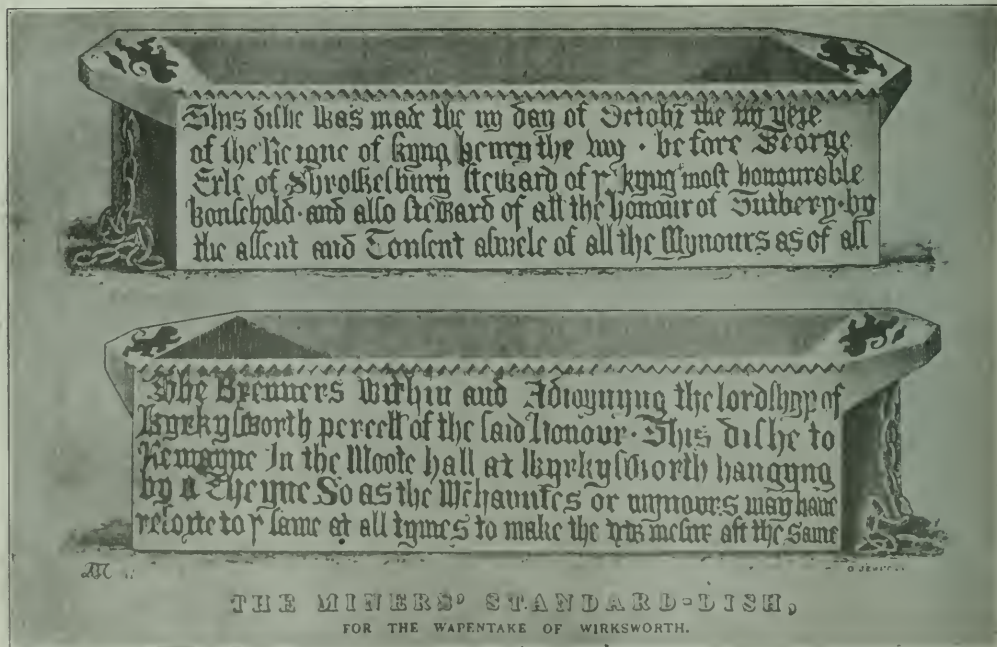 This dishe was made the iiij day of Octobr̄ the iiij yere
of the Reigne of kyng henry the viij · before George
Erle of Shrowesbury steward of yᵉ kyng most honourable
houshold · and also steward of all the honour of Tutbery · by
the assent and Consent aswele of all the Mynours as of all
the Brenners within and Adioynyng the lordshyp of
Wyrkysworth percell of the said honour · This dishe to
Remayne In the Moote hall at Wyrkysworth hangyng
by a Cheyne So as the M̄chauntes or mynours may have
resorte to yᵉ same at all tymes to make the trw mesure aft the same
THE MINERS' STANDARD-DISH,
FOR THE WAPENTAKE OF WIRKSWORTH.